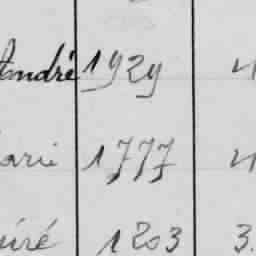 André 1929 4
arie 1777 4
iré 1203 3.